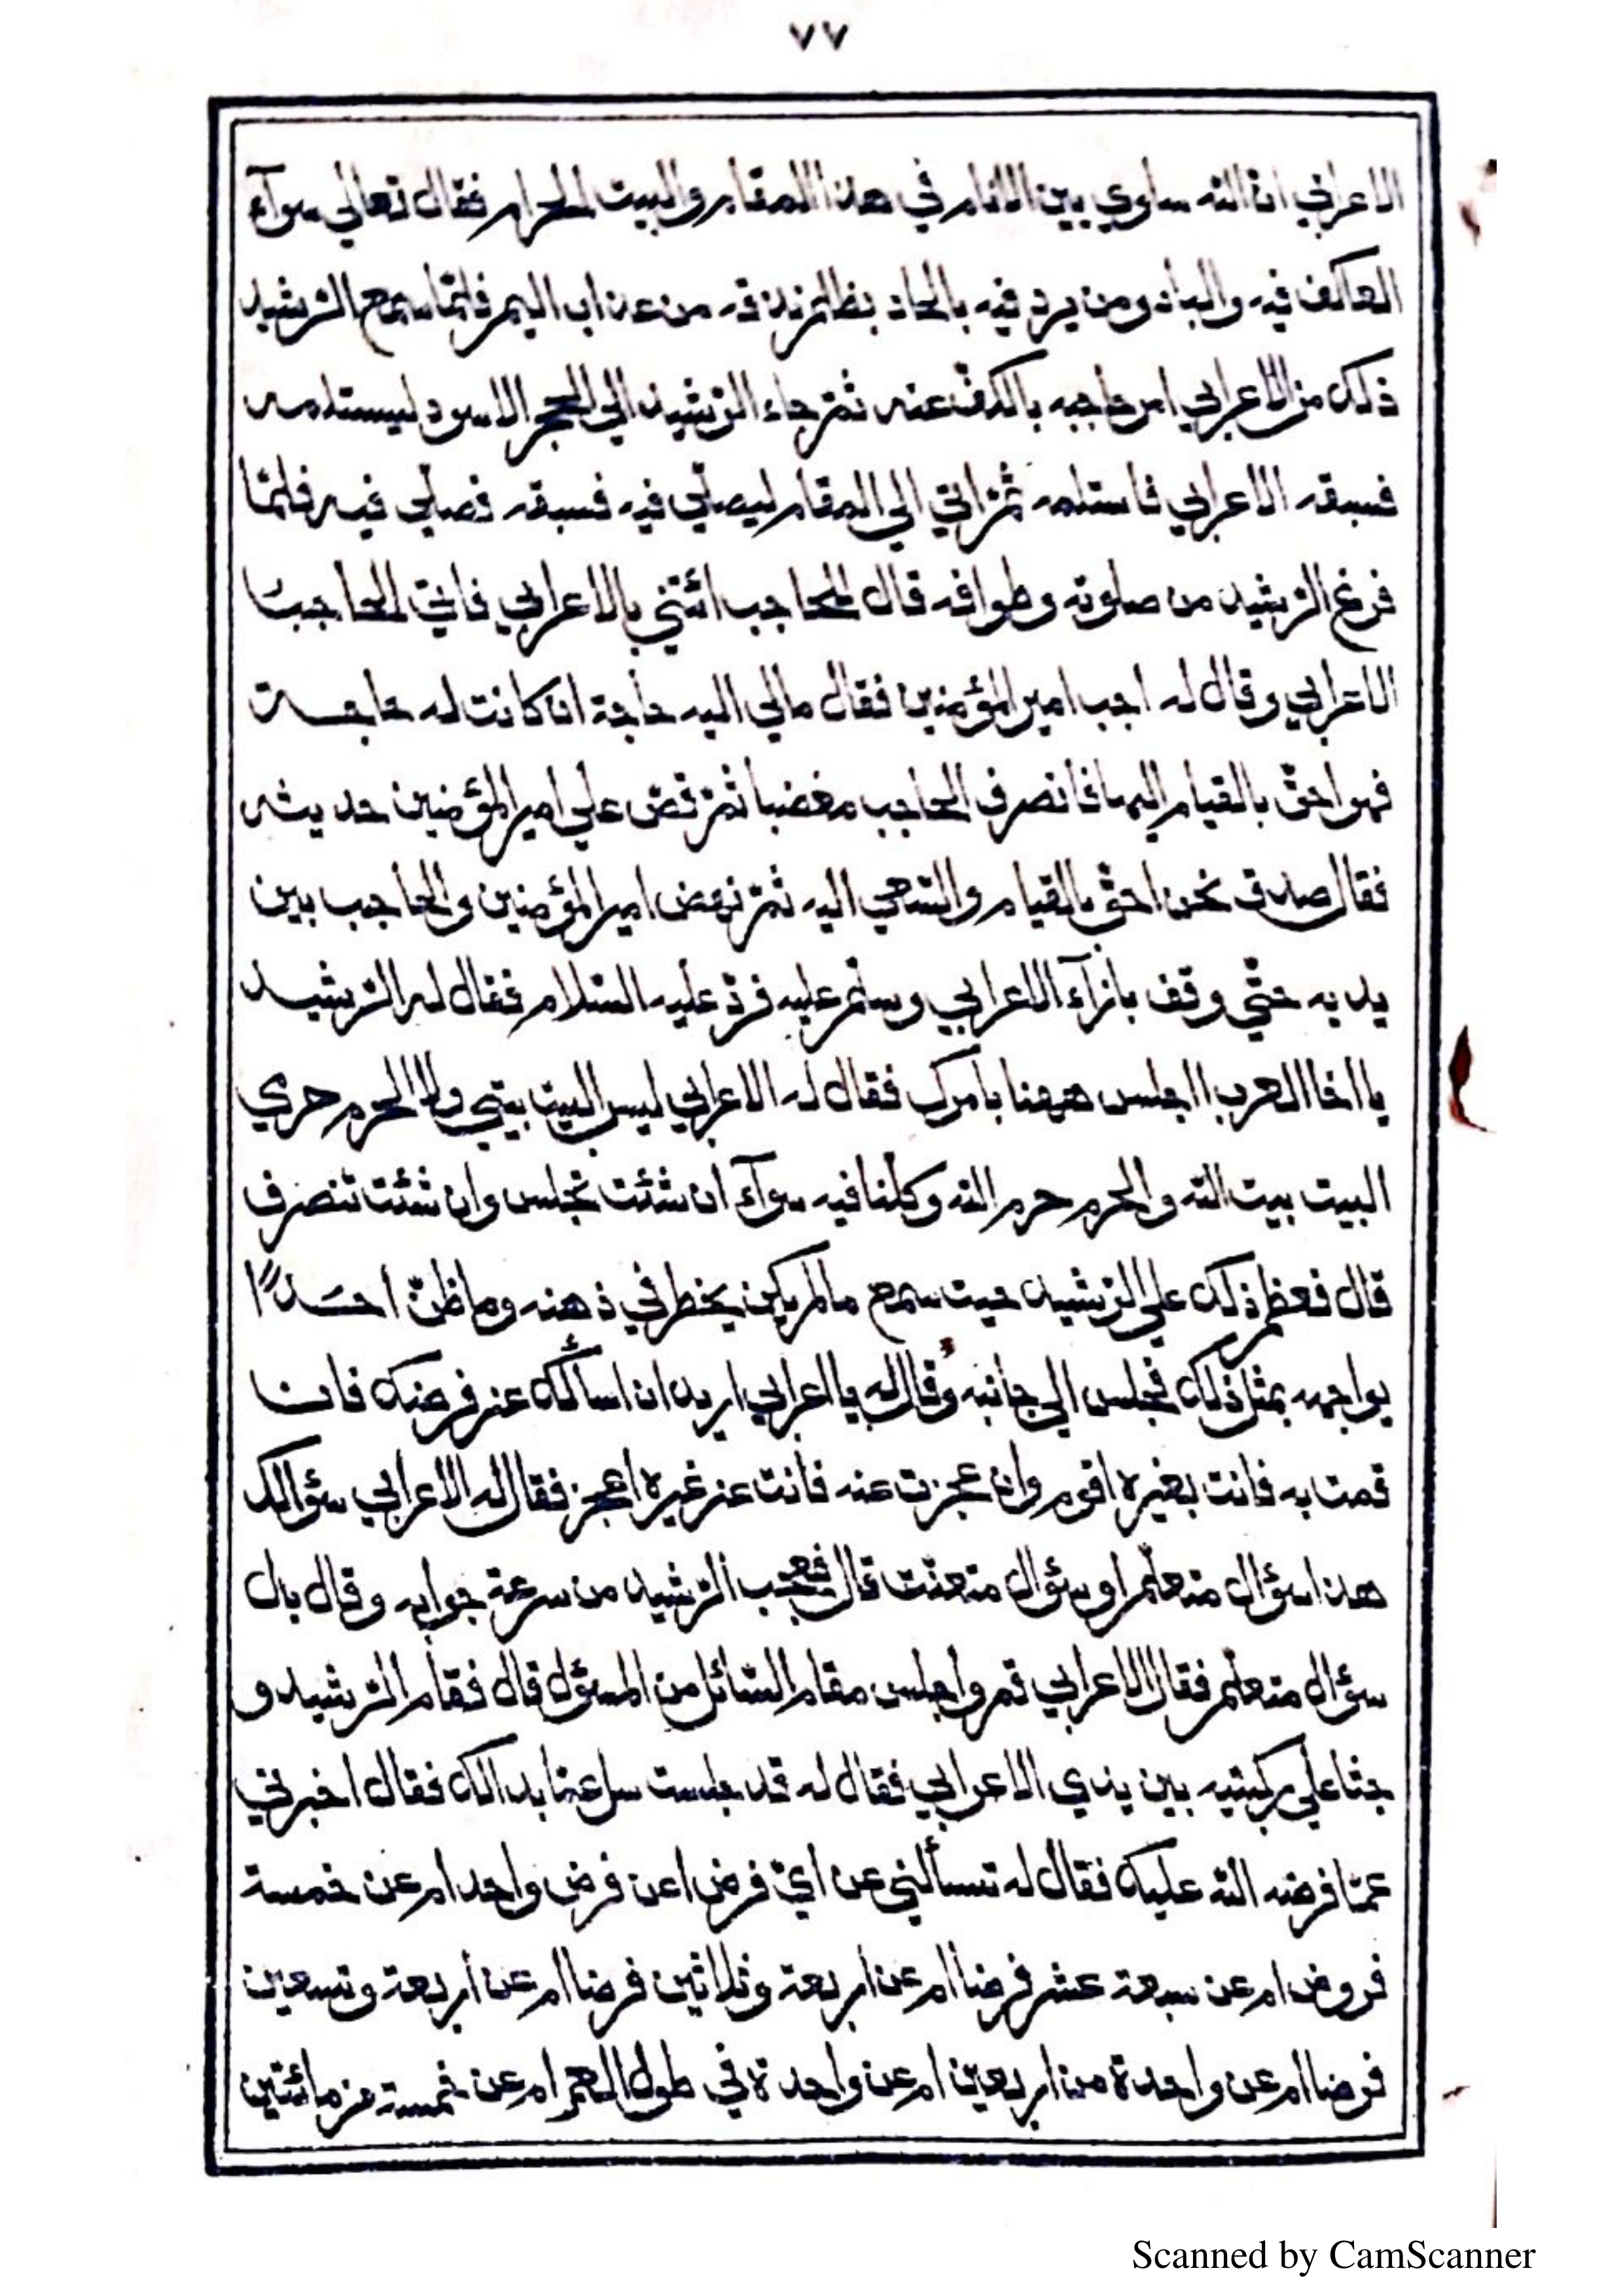 ٧٧
الاعرابي ان الله ساوي بين الانام في هذا المقام والبيت الحرام فقال تعالي سوآء
العاكف فيه والباد ومن يرد فيه بالحاد بظلم نذقه من عذاب اليم فلمّا سمع الرّشيد
ذلك من الاعرابي امر حاجبه بالكفّ عنه ثمّ جاء الرّشيد الي الحجر الاسود ليستلمه
فسبقه الاعرابي فاستلمه ثمّ اتي الي المقام ليصلّي فيه فسبقه فصلّي فيه فلمّا
فرغ الرّشيد من صلوته وطوافه قال للحاجب ائتني بالاعرابي فاتي الحاجب
الاعرابي وقال له اجب امير المؤمنين فقال مالي اليه حاجة ان كانت له حاجة
فهو احقّ بالقيام اليها فانصرف الحاجب مغضبا ثمّ قصّ علي امير المؤمنين حديثه
فقال صدق نحن احقّ بالقيام والسّعي اليه ثمّ نهض امير المؤمنين والحاجب بين
يديه حتّي وقف بازآء الاعرابي وسلّم عليه فردّ عليه السّلام فقال له الرّشيد
يا اخا العرب ااجلس ههنا بامرك فقال له الاعرابي ليس البيت بيتي ولا الحرم حرمي
البيت بيت الله والحرم حرم الله وكلّنا فيه سوآء ان شئت تجلس وان شئت تنصرف
قال فعظم ذلك علي الرّشيد حيث سمع مالم يكن يخطر في ذهنه وما ظنّ احدًا
يواجهه بمثل ذلك فجلس الي جانبه وقال له يا اعرابي اريد ان اسألك عن فرضك فان
قمت به فانت بغيره اقوم وان عجزت عنه فانت عن غيره اعجز فقال له الاعرابي سؤالك
هذا سؤال متعلّم او سؤال متعنّت قال فعجب الرّشيد من سرعة جوابه وقال بل
سؤال متعلّم فقال الاعرابي قم واجلس مقام السّائل من المسؤل قال فقام الرّشيد و
جثا علي ركبتيه بين يدي الاعرابي فقال له قد جلست سل عمّا بدا لك فقال اخبرني
عمّا فرضه الله عليك فقال له تسألني عن ايّ فرض اعن فرض واحد ام عن خمسة
فروض ام عن سبعة عشر فرضا ام عن اربعة وثلاثين فرضا ام عن اربعة وتسعين
فرضا ام عن واحدة من اربعين ام عن واحدة في طول العمر ام عن خمسة من مائتين
Scanned by CamScanner